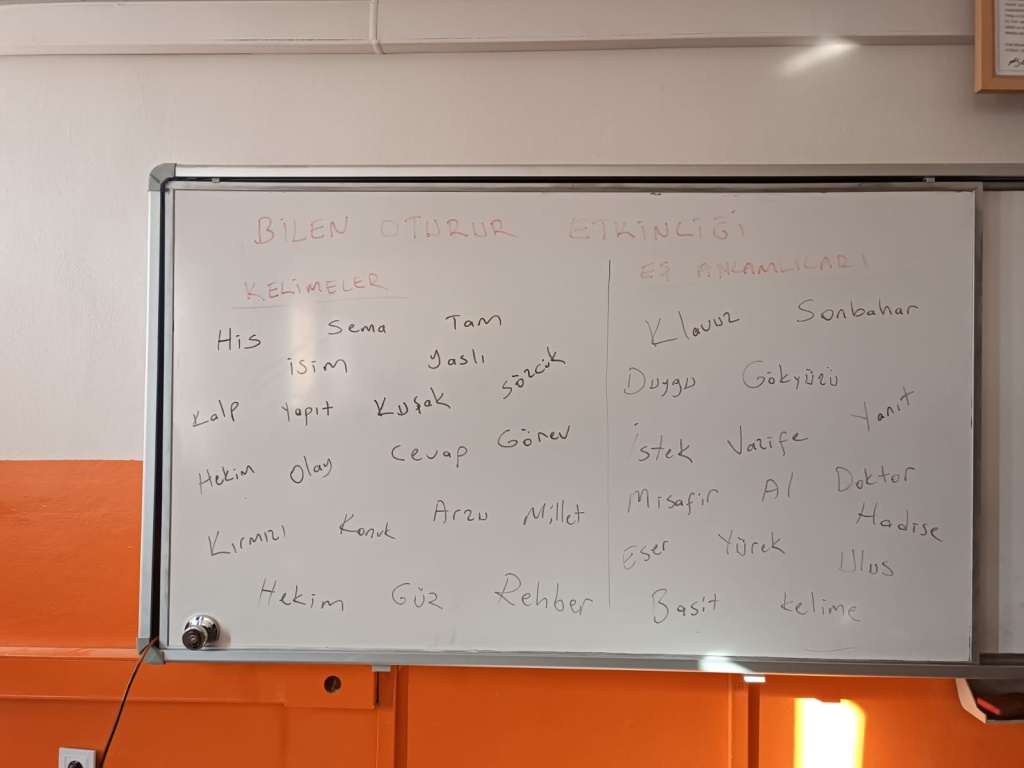 BİLEN OTURUR ETKİNLİĞİ
KELİMELER
His Sema Tam
isim yaslı
Kalp Yapıt Kuşak sözcük
Hekim Olay Cevap Görev
Kırmızı Konuk Arzu Millet
Hekim Güz Rehber
EŞ ANLAMLILARI
Klavuz Sonbahar
Duygu Gökyüzü
İstek Vazife Yanıt
Misafir Al Doktor
Hadise
Eser Yürek Ulus
Basit kelime